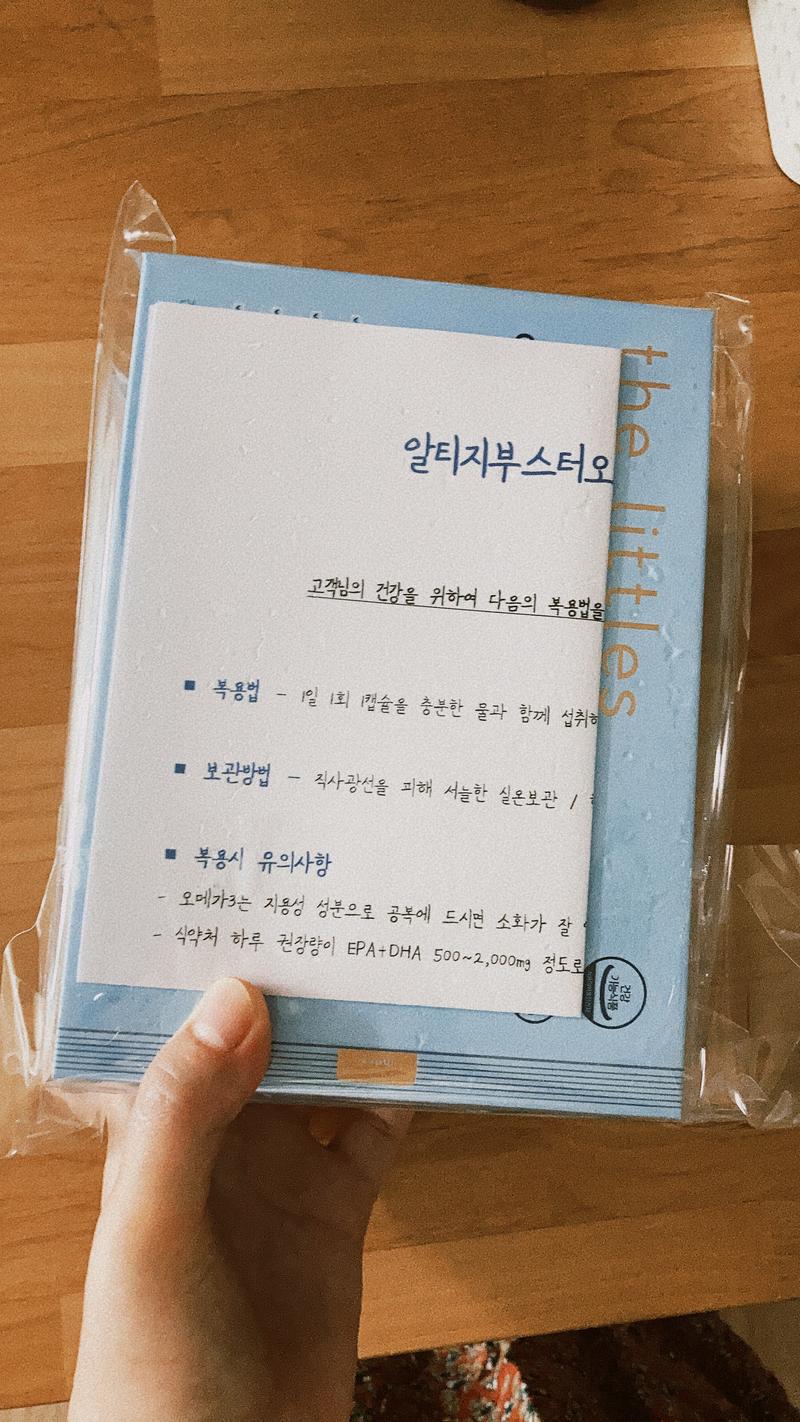 알티지부스터오
고객님의 건강을 위하여 다음의 복용법을
■ 복용법 - 1일 1회 1캡슐을 충분한 물과 함께 섭취하
■ 보관방법 - 직사광선을 피해 서늘한 실온보관 /
■ 복용시 유의사항
- 오메가3는 지용성 성분으로 공복에 드시면 소화가 잘
- 식약처 하루 권장량이 EPA+DHA 500~2,000mg 정도로
the littles
건강
기능식품